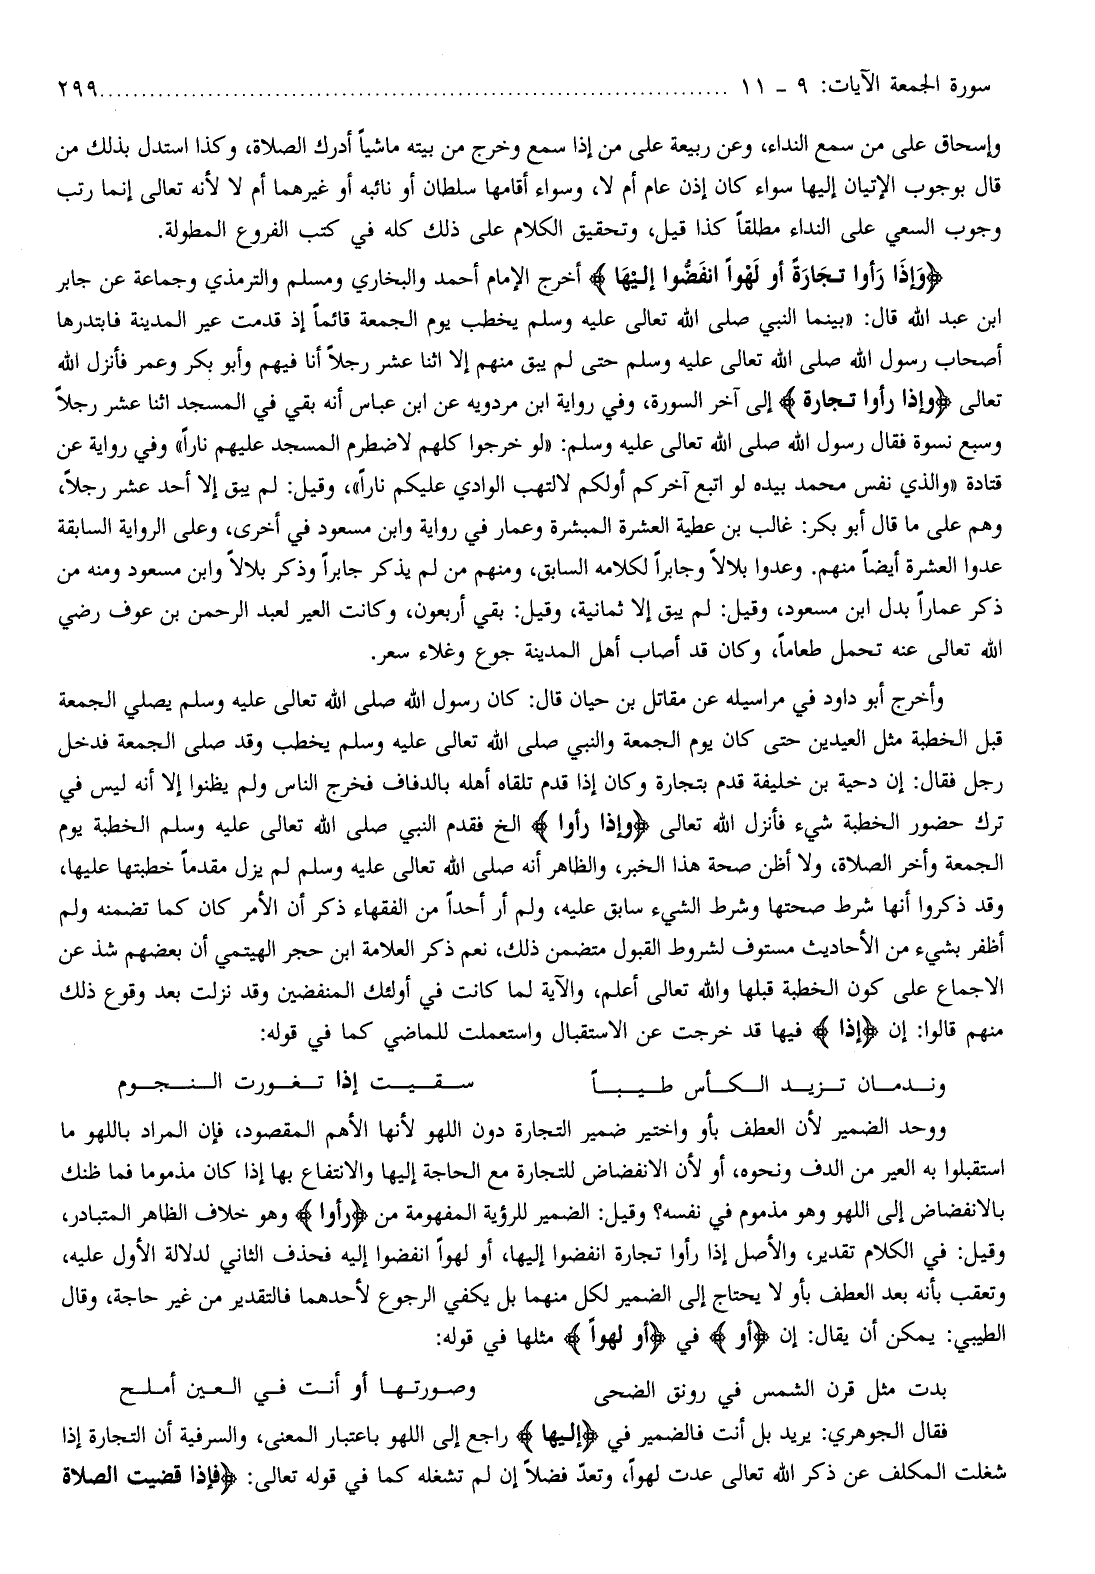 سورة الجمعة الآيات: ٩ ـ ١١ ........................................................................... ٢٩٩
وإسحاق على من سمع النداء، وعن ربيعة على من إذا سمع وخرج من بيته ماشياً أدرك الصلاة، وكذا استدل بذلك من
قال بوجوب الإتيان إليها سواء كان إذن عام أم لا، وسواء أقامها سلطان أو نائبه أو غيرهما أم لا لأنه تعالى إنما رتب
وجوب السعي على النداء مطلقاً كذا قيل، وتحقيق الكلام على ذلك كله في كتب الفروع المطولة.
﴿وَإذَا رَأوا تجَارَةً أو لَهْواً انفَضُّوا إليْهَا﴾ أخرج الإمام أحمد والبخاري ومسلم والترمذي وجماعة عن جابر
ابن عبد الله قال: «بينما النبي صلى الله تعالى عليه وسلم يخطب يوم الجمعة قائماً إذ قدمت عير المدينة فابتدرها
أصحاب رسول الله صلى الله تعالى عليه وسلم حتى لم يبق منهم إلا اثنا عشر رجلاً أنا فيهم وأبو بكر وعمر فأنزل الله
تعالى ﴿وإذا رأوا تجارة﴾ إلى آخر السورة، وفي رواية ابن مردويه عن ابن عباس أنه بقي في المسجد اثنا عشر رجلاً
وسبع نسوة فقال رسول الله صلى الله تعالى عليه وسلم: «لو خرجوا كلهم لاضطرم المسجد عليهم ناراً» وفي رواية عن
قتادة «والذي نفس محمد بيده لو اتبع آخركم أولكم لالتهب الوادي عليكم ناراً»، وقيل: لم يبق إلا أحد عشر رجلاً،
وهم على ما قال أبو بكر: غالب بن عطية العشرة المبشرة وعمار في رواية وابن مسعود في أخرى، وعلى الرواية السابقة
عدوا العشرة أيضاً منهم. وعدوا بلالاً وجابراً لكلامه السابق، ومنهم من لم يذكر جابراً وذكر بلالاً وابن مسعود ومنه من
ذكر عماراً بدل ابن مسعود، وقيل: لم يبق إلا ثمانية، وقيل: بقي أربعون، وكانت العير لعبد الرحمن بن عوف رضي
الله تعالى عنه تحمل طعاماً، وكان قد أصاب أهل المدينة جوع وغلاء سعر.
وأخرج أبو داود في مراسيله عن مقاتل بن حيان قال: كان رسول الله صلى الله تعالى عليه وسلم يصلي الجمعة
قبل الخطبة مثل العيدين حتى كان يوم الجمعة والنبي صلى الله تعالى عليه وسلم يخطب وقد صلى الجمعة فدخل
رجل فقال: إن دحية بن خليفة قدم بتجارة وكان إذا قدم تلقاه أهله بالدفاف فخرج الناس ولم يظنوا إلا أنه ليس في
ترك حضور الخطبة شيء فأنزل الله تعالى ﴿وإذا رأوا﴾ الخ فقدم النبي صلى الله تعالى عليه وسلم الخطبة يوم
الجمعة وأخر الصلاة، ولا أظن صحة هذا الخبر، والظاهر أنه صلى الله تعالى عليه وسلم لم يزل مقدماً خطبتها عليها،
وقد ذكروا أنها شرط صحتها وشرط الشيء سابق عليه، ولم أر أحداً من الفقهاء ذكر أن الأمر كان كما تضمنه ولم
أظفر بشيء من الأحاديث مستوف لشروط القبول متضمن ذلك، نعم ذكر العلامة ابن حجر الهيتمي أن بعضهم شذ عن
الاجماع على كون الخطبة قبلها والله تعالى أعلم، والآية لما كانت في أولئك المنفضين وقد نزلت بعد وقوع ذلك
منهم قالوا: إن ﴿إذا﴾ فيها قد خرجت عن الاستقبال واستعملت للماضي كما في قوله:
وندمان تزيد الكأس طيباً سقيت إذا تغورت النجوم
ووحد الضمير لأن العطف بأو واختير ضمير التجارة دون اللهو لأنها الأهم المقصود، فإن المراد باللهو ما
استقبلوا به العير من الدف ونحوه، أو لأن الانفضاض للتجارة مع الحاجة إليها والانتفاع بها إذا كان مذموما فما ظنك
بالانفضاض إلى اللهو وهو مذموم في نفسه؟ وقيل: الضمير للرؤية المفهومة من ﴿رأوا﴾ وهو خلاف الظاهر المتبادر،
وقيل: في الكلام تقدير، والأصل إذا رأوا تجارة انفضوا إليها، أو لهواً انفضوا إليه فحذف الثاني لدلالة الأول عليه،
وتعقب بأنه بعد العطف بأو لا يحتاج إلى الضمير لكل منهما بل يكفي الرجوع لأحدهما فالتقدير من غير حاجة، وقال
الطيبي: يمكن أن يقال: إن ﴿أو﴾ في ﴿أو لهواً﴾ مثلها في قوله:
بدت مثل قرن الشمس في رونق الضحى وصورتها أو أنت في العين أملح
فقال الجوهري: يريد بل أنت فالضمير في ﴿إليها﴾ راجع إلى اللهو باعتبار المعنى، والسرفية أن التجارة إذا
شغلت المكلف عن ذكر الله تعالى عدت لهواً، وتعدّ فضلاً إن لم تشغله كما في قوله تعالى: ﴿فإذا قضيت الصلاة